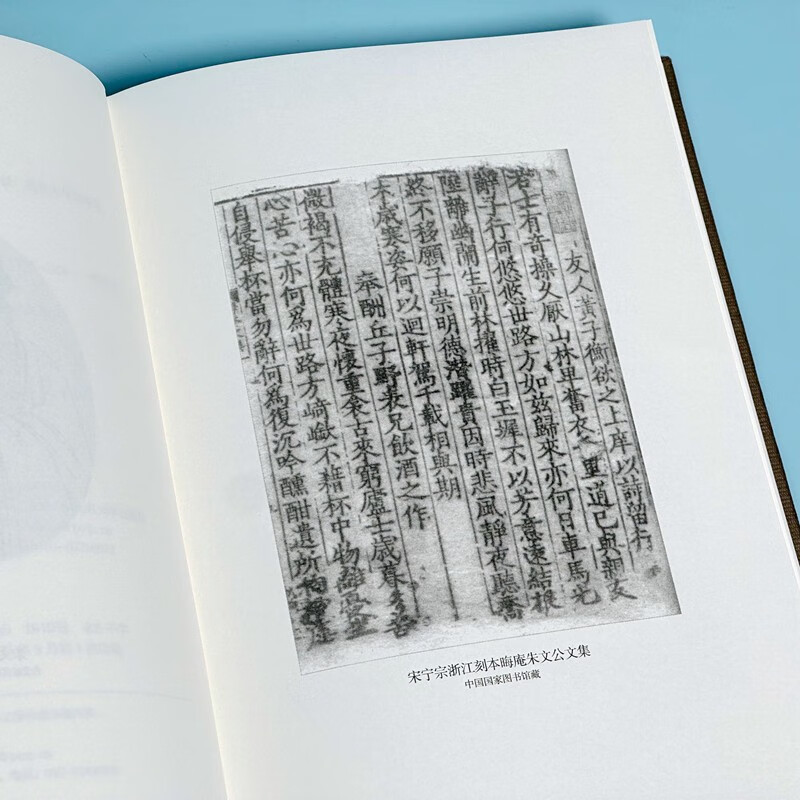 友人黃子衡欲之上庠以詩留行
若士有奇操久厭山林里奮衣重道已與親友
辭子行何悠悠世路方如茲歸來亦何日車馬光
陸離幽蘭生前林擢時白玉墀不以芳意遠結根
終不移願子崇明德潛躍貴因時悲風靜夜聽喬
木歲寒姿何以迴軒駕千載相與期
奉酬丘子野表兄飲酒之作
微褐不充體寒夜懷重衾古來窮廬士歲暮多苦
心苦心亦何為世路方崎嶔不藉杯中物離憂坐
自侵舉杯當勿辭何為復沉吟醺酣遺所拘
宋宁宗浙江刻本晦庵朱文公文集
中国国家图书馆藏